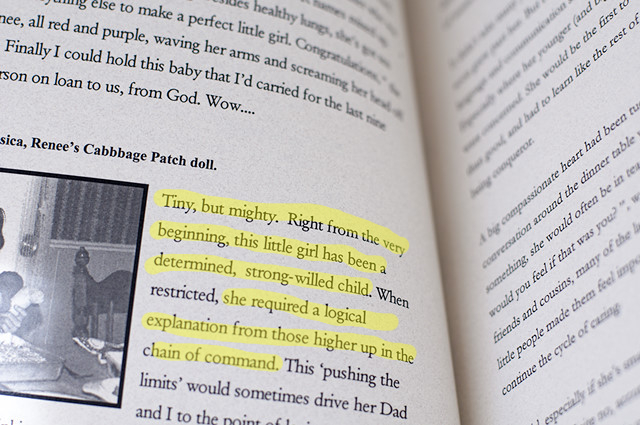 else to make a perfect little girl. Congratulations,
all red and purple, waving her arms and screaming her head
Finally I could hold this baby that I'd carried for the last nine
on loan to us, from God. Wow....
Renee's Cabbbage Patch doll.
Tiny, but mighty. Right from the very
beginning, this little girl has been a
determined, strong-willed child. When
restricted, she required a logical
explanation from those higher up in the
chain of command. This 'pushing the
limits' would sometimes drive her Dad
and I to the point of
She would be the first to
and had to learn like the rest of
being conqueror.
A big compassionate heart had been
conversation around the dinner table
something, she would often be in
would you feel if that was you?"
friends and cousins, many of the
little people made them feel
continue the cycle of caring
especially if she's